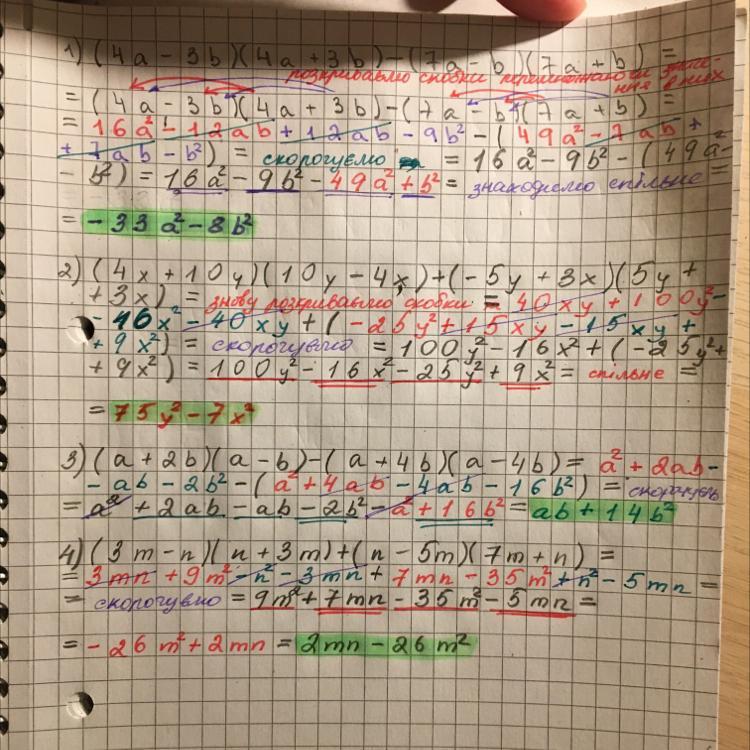 1) (4a - 3b)(4a + 3b) - (7a - b)(7a + b) =
розкриваємо скобки перемножаючи
= (4a - 3b)(4a + 3b) - (7a - b)(7a + b) =
= 16a² - 12ab + 12ab - 9b² - (49a² - 7ab +
+ 7ab - b²) = скорочуємо = 16a² - 9b² - (49a² -
- b²) = 16a² - 9b² - 49a² + b² = знаходимо спільне =
= - 33a² - 8b²
2) (4x + 10y)(10y - 4x) + (- 5y + 3x)(5y +
+ 3x) = знову розкриваємо скобки = 40xy + 100y² -
- 16x² - 40xy + (- 25y² + 15xy - 15xy +
+ 9x²) = скорочуємо = 100y² - 16x² + (- 25y² +
+ 9x²) = 100y² - 16x² - 25y² + 9x² = спільне =
= 75y² - 7x²
3) (a + 2b)(a - b) - (a + 4b)(a - 4b) = a² + 2ab -
- ab - 2b² - (a² + 4ab - 4ab - 16b²) =
= a² + 2ab - ab - 2b² - a² + 16b² = ab + 14b²
4) (3m - n)(n + 3m) + (n - 5m)(7m + n) =
= 3mn + 9m² - n² - 3mn + 7mn - 35m² + n² - 5mn =
= скорочуємо = 9m² + 7mn - 35m² - 5mn =
= - 26m² + 2mn = 2mn - 26m²